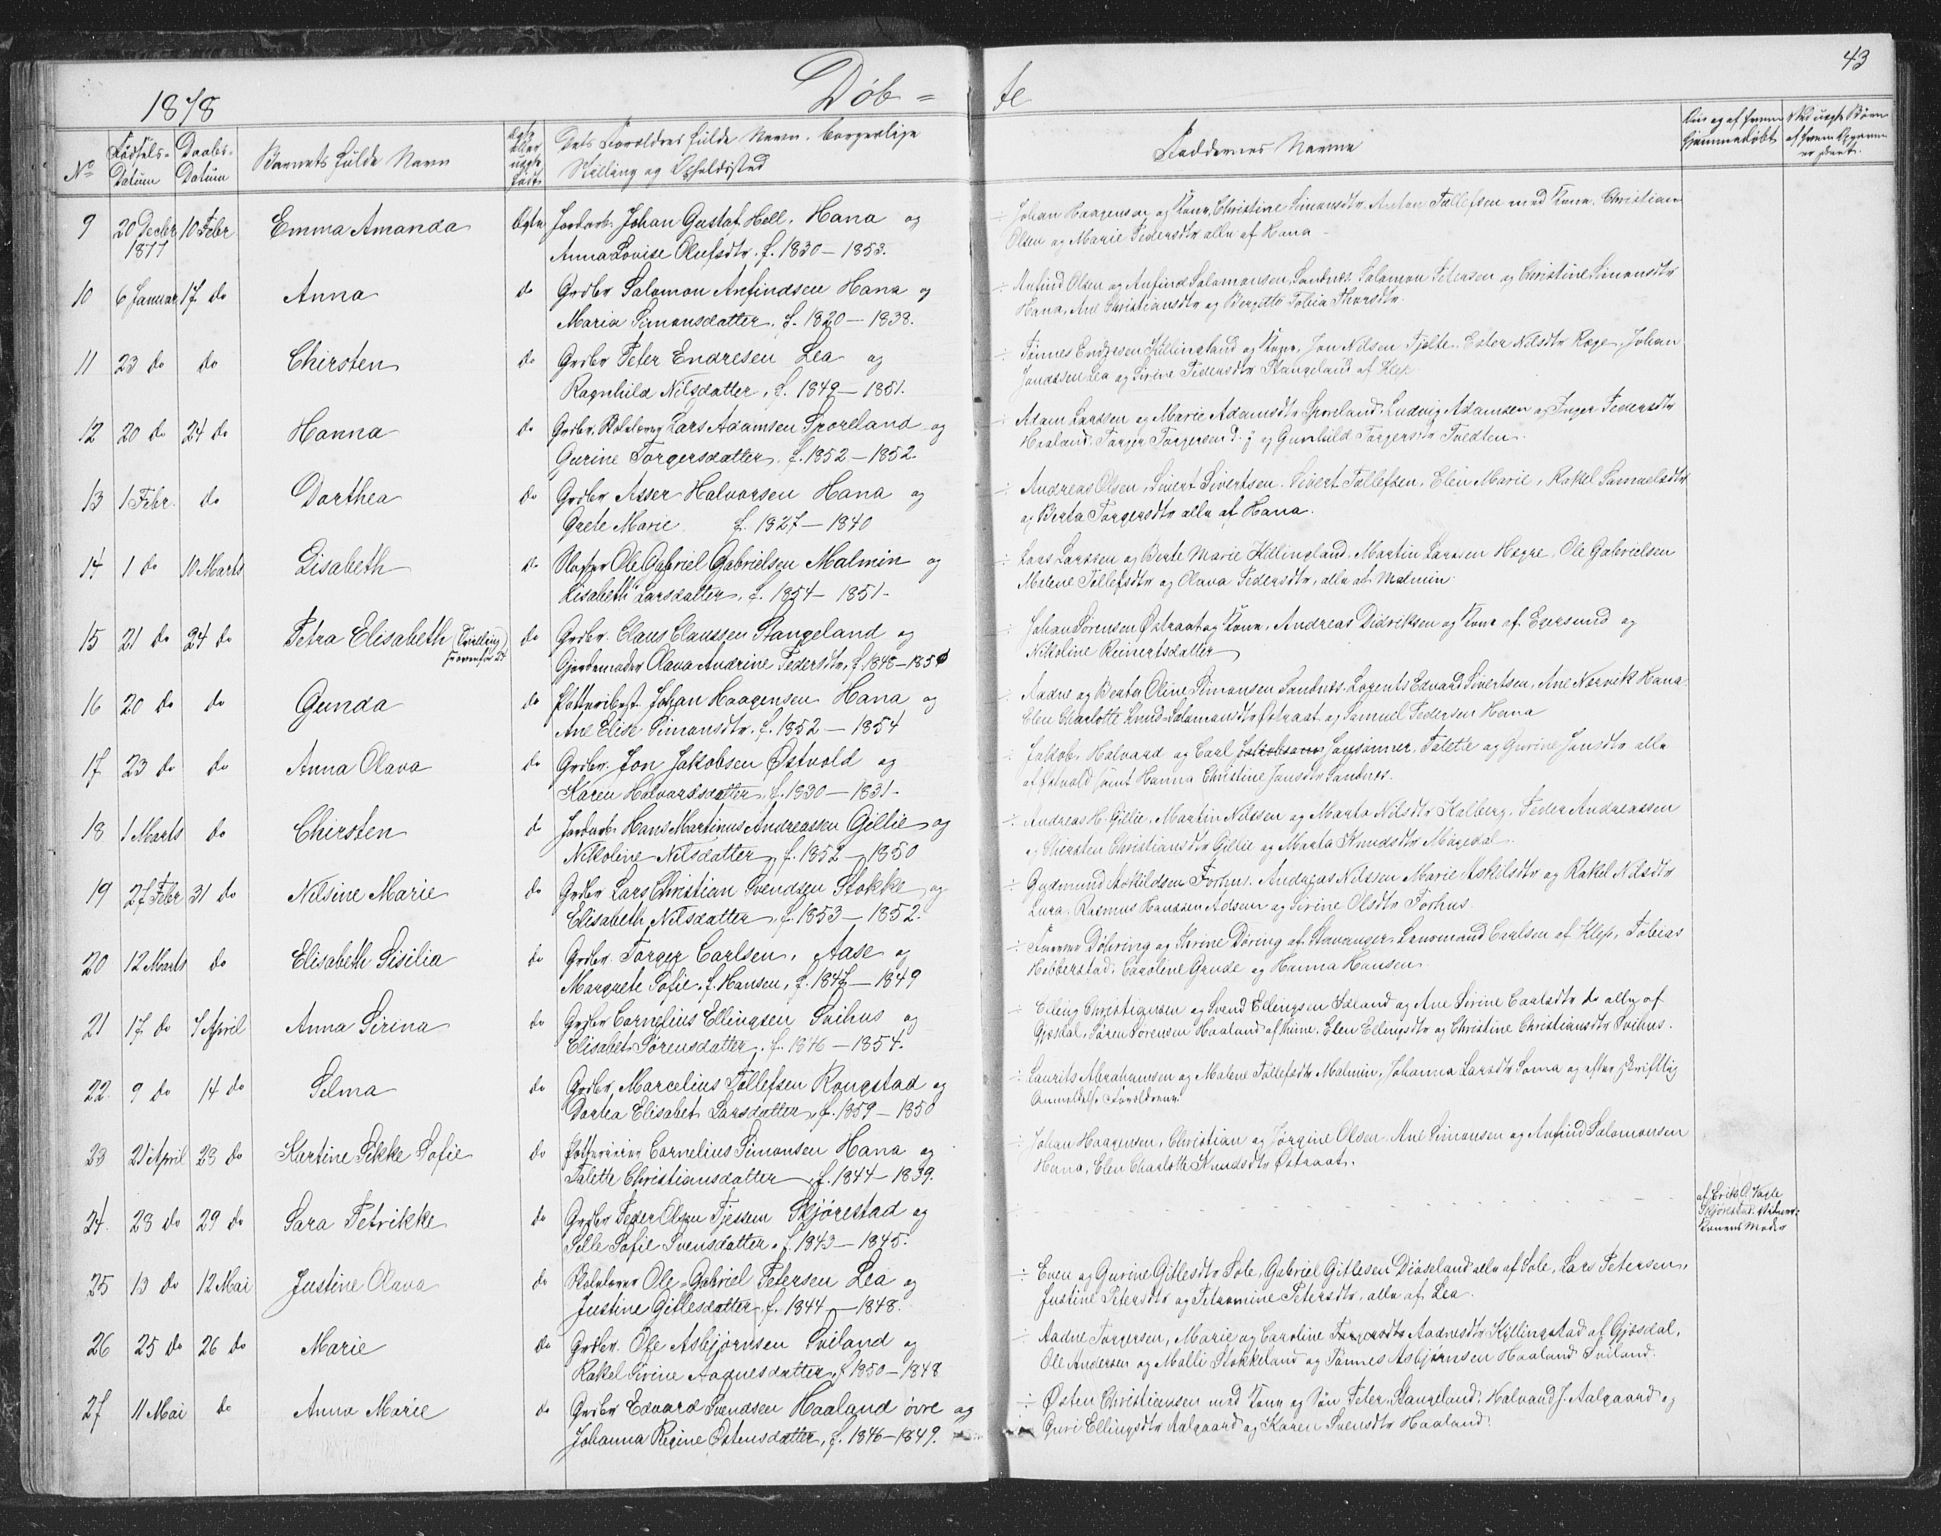 43
1878
Døb = te
No
Fødsels-
Datum
Daabs-
Datum
Barnets fulde Navn
Ægte
eller
uægte
født
Dets Forældres fulde Navn, borgerlige
Stilling og Opholdssted
Faddernes Navne
9 20 Decbr 10 Febr Emma Amanda Ægte Jordarb. Johan Gustaf Hell, Hana og
1877 Anna Lovise Olufsdtr. f. 1830 — 1853.
÷ Johan Haagensen og Kone, Christine Simonsdtr, Anton Tollefsen med Kone, Christian
Olsen og Marie Pedersdtr alle af Hana
10 6 Januar 17 do Anna do Grdbr Salomon Anfindsen Hana og
Maria Simonsdatter, f. 1820 — 1838.
÷ Anfind Olsen og Anfind Salomonsen Sandnes, Salomon Petersen og Christine Simonsdtr
Hana, Ane Christiansdtr og Bergitte Tobia Thorsdtr.
11 23 do do Chirsten do Grdbr Peter Endresen Lea og
Ragnhild Nilsdatter, f. 1849 — 1851.
÷ Tønnes Endresen Kyllingland og Kone, Jon Nilsen Tjelte, Ester Nilsdtr Rage, Johan
Lea og Sirine Pedersdtr Stangeland af Klep
12 20 do 24 do Hanna do Grdbr. Lars Adamsen Sporeland og
Gurine Torgersdatter. f. 1852 — 1852.
÷ Adam Larssen og Marie Adamsdtr Sporeland, Ludvig Adamsen og Inger Pedersdtr
Haaland, Torger Torgersen og Gunhild Torgersdtr Tvedten.
13 1 Febr. do Dorthea do Grdbr Asser Halvorsen Hana og
Grete Marie f. 1827 — 1840
÷ Andreas Olsen, Sivert Sivertsen, Sivert Tollefsen, Elen Marie, Rakel Samuelsdtr
og Berta Torgersdtr alle af Hana.
14 1 do 10 Marts Lisabeth do Ole Gabriel Gabrielsen Malmin og
Lisabeth Larsdatter, f. 1854 — 1851.
÷ Lars Larssen og Berte Marie Killingland, Martin Larssen Høgre, Ole Gabrielsen
Malene Tollefsdtr og Olava Pedersdtr, alle af Malmin.
15 21 do 24 do Petra Elisabeth (Tvilling) do Grdbr. Claus Claussen Stangeland og
Gjordemoder Olava Andrine Pedersdtr, f. 1848 — 1850
÷ Johan Sørensen Østraat og Kone, Andreas Didriksen og Kone af Egersund og
Nikoline Reinertsdatter
16 20 do do Gunda do Pottemest. Johan Haagensen Hana og
Ane Elise Simonsdtr. f. 1852 — 1854
÷ Aadne og Berta Oline Simonsen Sandnes, Edvard Sivertsen, Ane Nærvik Hana
Elen Charlotte Knud-Salomonsdtr Østraat og Samuel Pedersen Hana
17 23 do do Anna Olava do Grdbr. Jon Jakobsen Østvold og
Karen Halvorsdatter, f. 1830 — 1831.
÷ Jakob, Halvard og Carl Jonsønner, Talette og Gurine Jonsdtr alle
af Østvold samt Hanna Christine Jonsdtr Sandnes.
18 1 Marts do Chirsten do Jordarb. Hans Martinus Andreassen Gillie og
Nikoline Nilsdatter, f. 1852 — 1850
÷ Andreas H. Gillie, Martin Nilssen og Marta Nilsdtr Kalberg, Peder Andreassen
og Chirsten Christiansdtr Gillie og Marta Knudsdtr Møgedal.
19 27 Febr 31 do Nilsine Marie do Grdbr Lars Christian Svendsen Stokke og
Elisabeth Nilsdatter, f. 1853 — 1852.
÷ Gudmund Askildsen Forhus, Andreas Nilssen Marie Askilsdtr og Rakel Nilsdtr
Lura, Rasmus Hanssen Adsem og Sirine Olsdtr Forhus.
20 12 Marts do Elisabeth Sisilia do Grdbr. Torger Carlsen, Aase og
Margrete Sofie, f. Hansen, f. 1847 — 1849
÷ Døhring og Sirine Døring af Stavanger, Carlsen af Klep, Tobias
Hobberstad, Caroline Grude og Hanna Hansen
21 17 do 7 April Anna Sirina do Grdbr Cornelius Ellingsen Svihus og
Elisabet Sørensdatter, f. 1846 — 1854.
÷ Elling Christiansen og Svend Ellingsen Sæland og Ane Sirine Carlsdtr do alle af
Gjesdal, Søren Sørensen Haaland af Time, Elen Ellingsdtr og Christine Christiansdtr Svihus.
22. 9 do 14 do Selma do Grdbr. Marcelius Tollefsen Rougstad og
Dortea Elisabet Larsdatter, f. 1859 — 1850
÷ Laurits Abrahamsen og Malene Tollefsdtr Malmin, Johanna Larsdtr Soma og efter skriftlig
Anmeldelse Forældrene.
23 21 April 23 do Kartine Sikke Sofie do Cornelius Simonsen Hana og
Talette Christiansdatter, f. 1844 — 1839.
÷ Johan Haagensen, Christian og Jørgine Olsen, Ane Simonsen og Anfind Salomonsen
Hana, Elen Charlotte Knudsdtr Østraat.
24. 28 do 29 do Sara Petrikke do Grdbr Peder Olsen Tjessem Skjørestad og
Sille Sofie Svensdatter. f. 1843 — 1845.
af Erik O. Vagle
Skjørestad. Vidner:
Konens Moder
25 13 do 12 Mai Justine Olava do Ole-Gabriel Petersen Lea og
Justine Gitlesdatter, f. 1844 — 1848.
÷ Even og Gurine Gitlesdtr Sole, Gabriel Gitlesen alle af Sole, Lars Petersen,
Justine Petersdtr og Petromine Petersdtr, alle af Lea.
26 25 do 26 do Marie do Grdbr. Ole Asbjørnsen Sviland og
Rakel Sirine Aadnesdatter, f. 1850 — 1848
÷ Aadne Torgersen, Marie og Caroline Aadnesdtr Kyllingstad af Gjesdal,
Ole Andersen og Malli Stokkeland og Tønnes Asbjørnsen Haaland Sviland.
27 11 Mai do Anna Marie do Grdbr Edvard Svendsen Haaland øvre og
Johanna Regine Østensdatter, f. 1846 — 1849.
÷ Østen Christiansen med Kone og Søn Peter Stangeland, Halvand J. Aalgaard og
Guri Ellingsdtr Aalgaard og Karen Svensdtr Haaland.